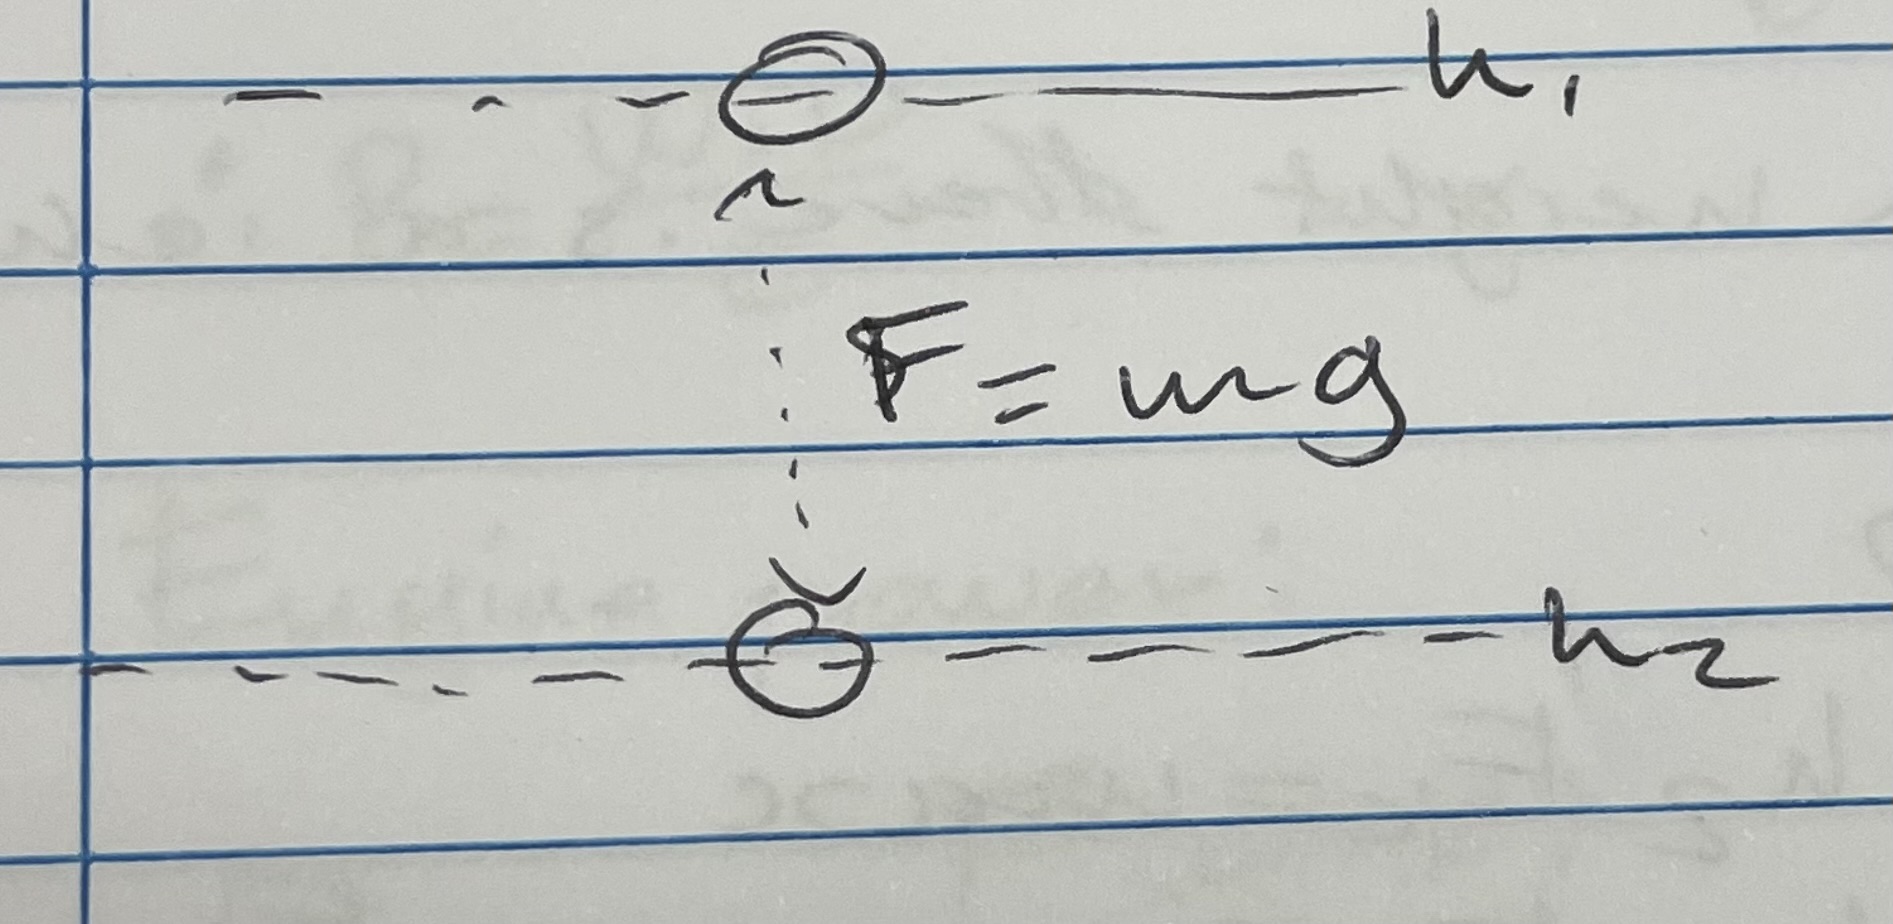 h₁
F = mg
h₂